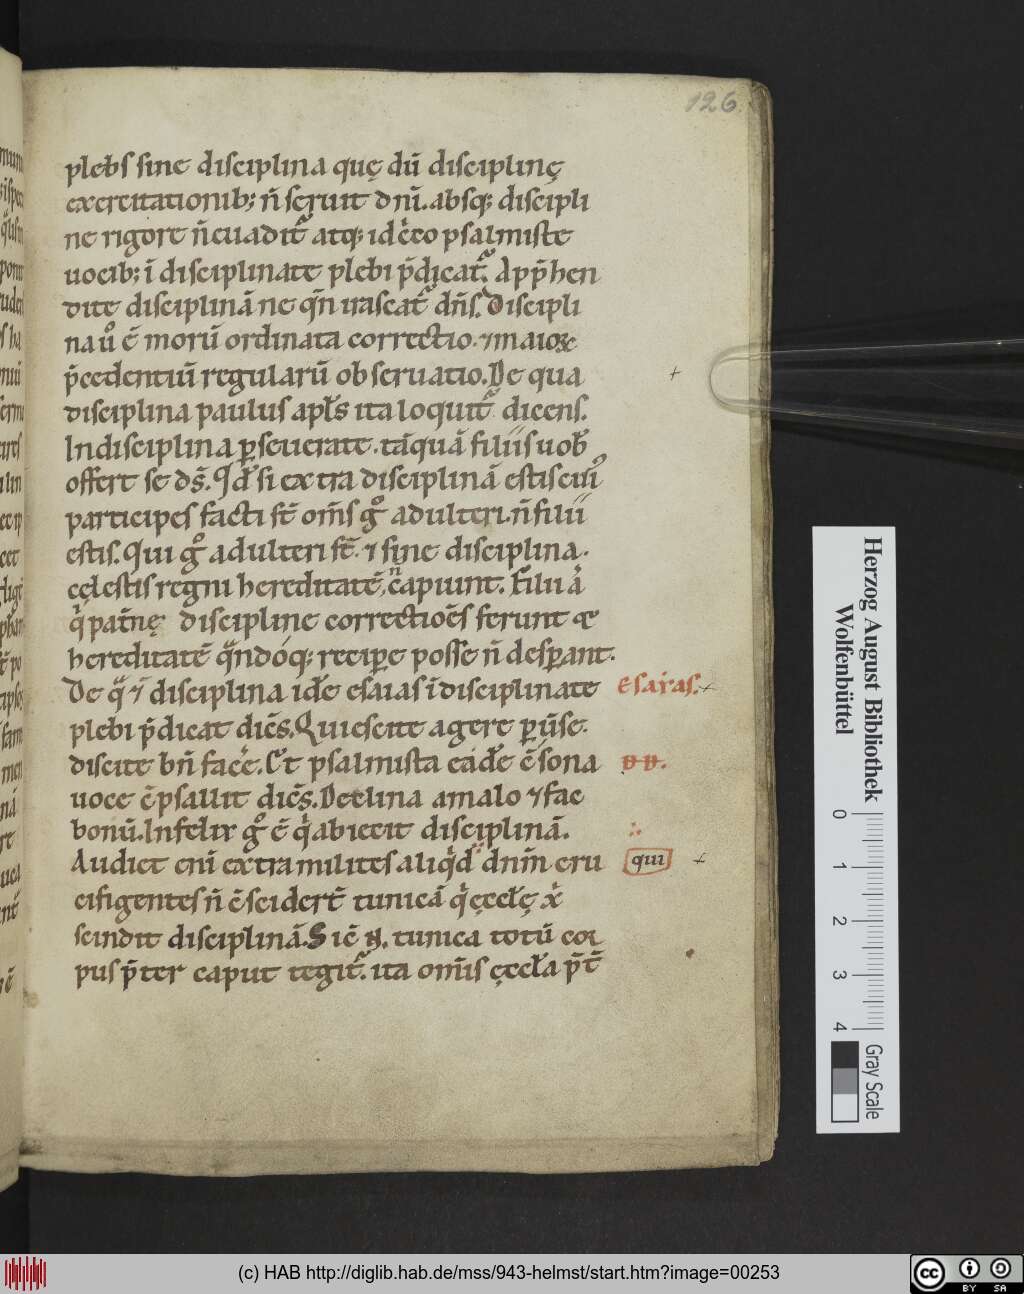 126
plebs sine disciplina quę dū disciplinę
exercitationib; n̄ seruit dnī. absq; discipli
ne rigore n̄ euadit᷑ atq; idcͥco psalmiste
uocib; ī disciplinate plebi p̄dicat᷑. App̄hen
dite disciplinā ne qn̄ irascat᷑ dn̄s. Discipli
na uͦ ē morū ordinata correctio. ⁊ maioꝝ
p̄cedentiū regularū obseruatio. De qua
disciplina paulus apl̄s ita loquit᷑ dicens.
In disciplina ꝑseuerate. tāquā filiis uob̄
offert se ds̄. Qd̄ si extra disciplinā estis cuiꝰ
participes facti st̄ om̄s gͦ adulteri. n̄ filii
estis. Qui gͦ adulteri st̄. ⁊ sine disciplina.
cęlestis regni hereditatē n̄ capiunt. Filii aͥ
qͥ pat̄nę discipline correctiōes ferunt
hereditatē qͣndoq; reciꝑe posse n̄ desꝑant.
De qͣ ⁊ ī disciplina idē esaias īdisciplinate
Esaias.
plebi p̄dicat dicēs. Quiescite agere ꝑuerse.
discite bn̄ facͤe. Et psalmista eadē
voce cͦpsallit dicēs. Declina a malo ⁊ fac
bonū. Infelix gͦ ē qͥ abiecit disciplinā.
Audiet eni extra milites aliqͥd dnm̄ cru
qui
cifigentes n̄ cͦsciderͭ tunicā qͥ ęccłę xͥ
scindit disciplinā. Sic̄ n. tunica totū cor
pus p̄ter caput tegit᷑. ita om̄is ęccła p̄t̄
Herzog August Bibliothek
Wolfenbüttel
0 1 2 3 4
Gray Scale
(c) HAB http://diglib.hab.de/mss/943-helmst/start.htm?image=00253
cc BY SA